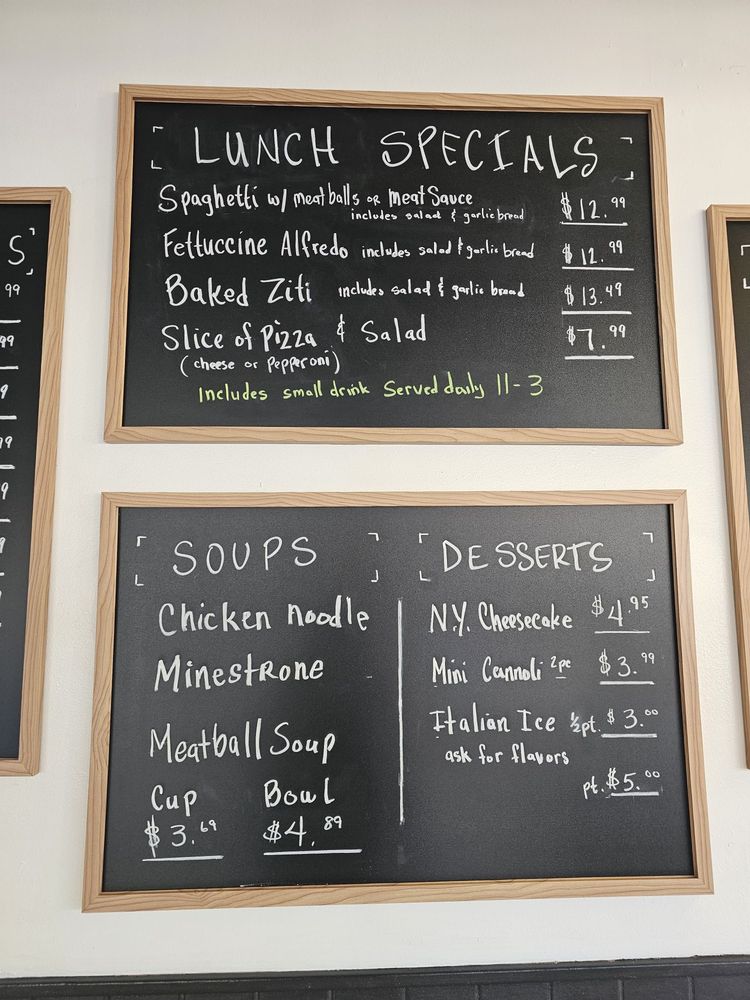 LUNCH SPECIALS
Spaghetti w/ meatballs or Meat Sauce $12.99
includes salad & garlic bread
Fettuccine Alfredo includes salad & garlic bread $12.99
Baked Ziti includes salad & garlic bread $13.49
Slice of Pizza & Salad $7.99
(cheese or Pepperoni)
Includes small drink Served daily 11-3
S
99
99
9
99
9
9
SOUPS
Chicken noodle
Minestrone
Meatball Soup
Cup Bowl
$3.69 $4.89
DESSERTS
N.Y. Cheesecake $4.95
Mini Cannoli 2pc $3.99
Italian Ice ½pt. $3.00
ask for flavors
pt. $5.00